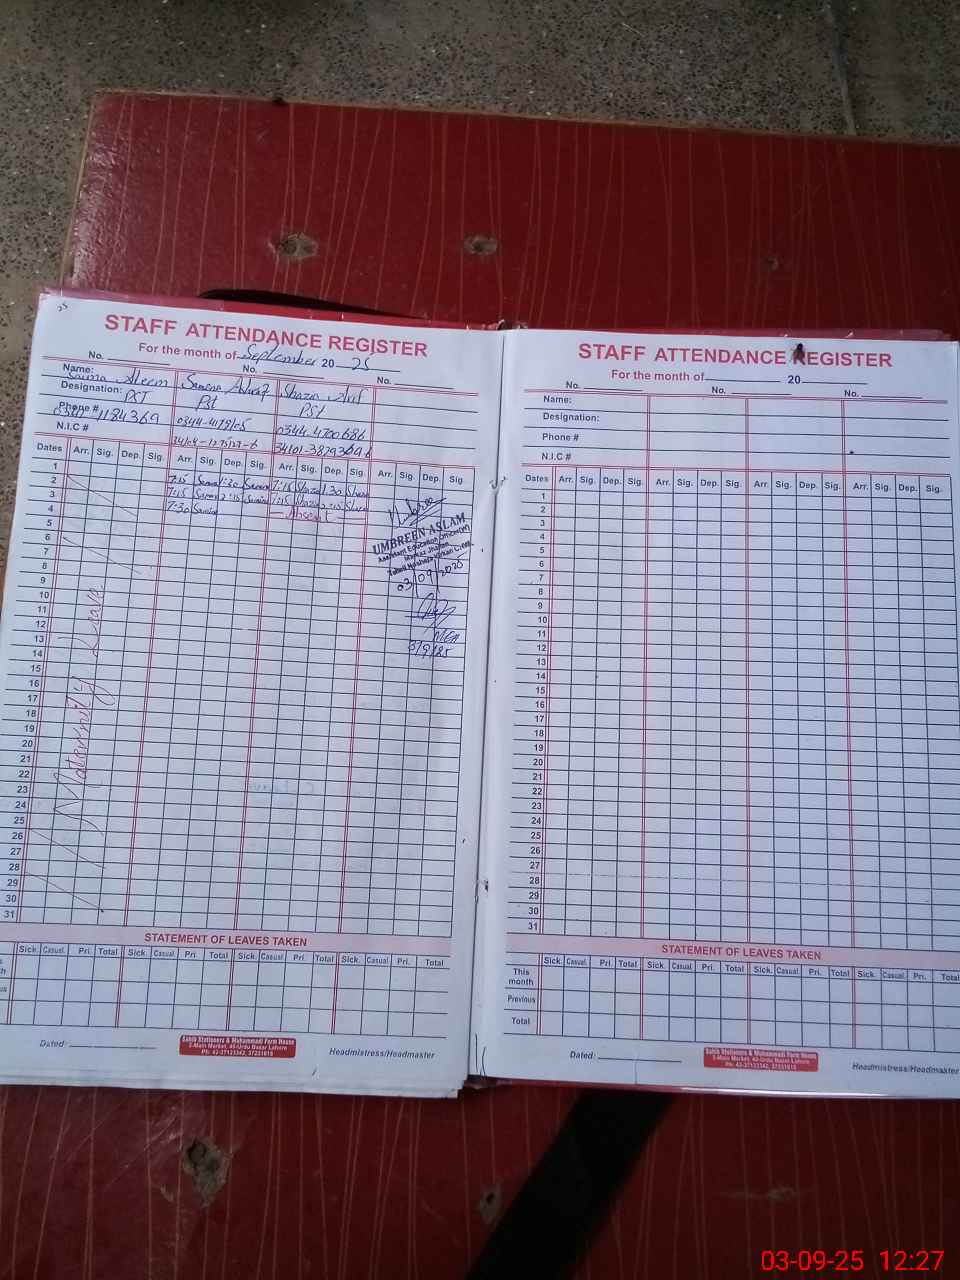 STAFF ATTENDANCE REGISTER
For the month of September 20 25
No. No. No.
Name: Aleem Samena Ashraf Shazia
Designation: PST Pst PST
Phone # 1184369 0344-4700686
N.I.C #
Dates Arr. Sig. Dep. Sig. Arr. Sig. Dep. Sig. Arr. Sig. Dep. Sig. Arr. Sig. Dep. Sig.
1
2 7:15 1:30 7:15 1:30
3 7:15 7:15
4 7:30 Absent
5
6
7
8
9
10
11
12
13
14
15
16
17
18
19
20
21
22
23
24
25
26
27
28
29
30
31
Maternity Leave
UMBREEN ASLAM
Assistant Education Officer(W)
Markaz
03/09/2025
MEA
3/9/25
STATEMENT OF LEAVES TAKEN
Sick. Casual. Pri. Total Sick. Casual. Pri. Total Sick. Casual. Pri. Total Sick. Casual. Pri. Total
Dated:
Sahib Stationers & Muhammadi Form House
2-Main Market, 40-Urdu Bazar Lahore
Ph: 42-37123342, 37231619
Headmistress/Headmaster
STAFF ATTENDANCE REGISTER
For the month of 20
No. No. No.
Name:
Designation:
Phone #
N.I.C #
Dates Arr. Sig. Dep. Sig. Arr. Sig. Dep. Sig. Arr. Sig. Dep. Sig. Arr. Sig. Dep. Sig.
1
2
3
4
5
6
7
8
9
10
11
12
13
14
15
16
17
18
19
20
21
22
23
24
25
26
27
28
29
30
31
STATEMENT OF LEAVES TAKEN
Sick. Casual. Pri. Total Sick. Casual. Pri. Total Sick. Casual. Pri. Total Sick. Casual. Pri. Total
This month
Previous
Total
Dated:
Sahib Stationers & Muhammadi Form House
2-Main Market, 40-Urdu Bazar Lahore
Ph: 42-37123342, 37231619
Headmistress/Headmaster
03-09-25 12:27